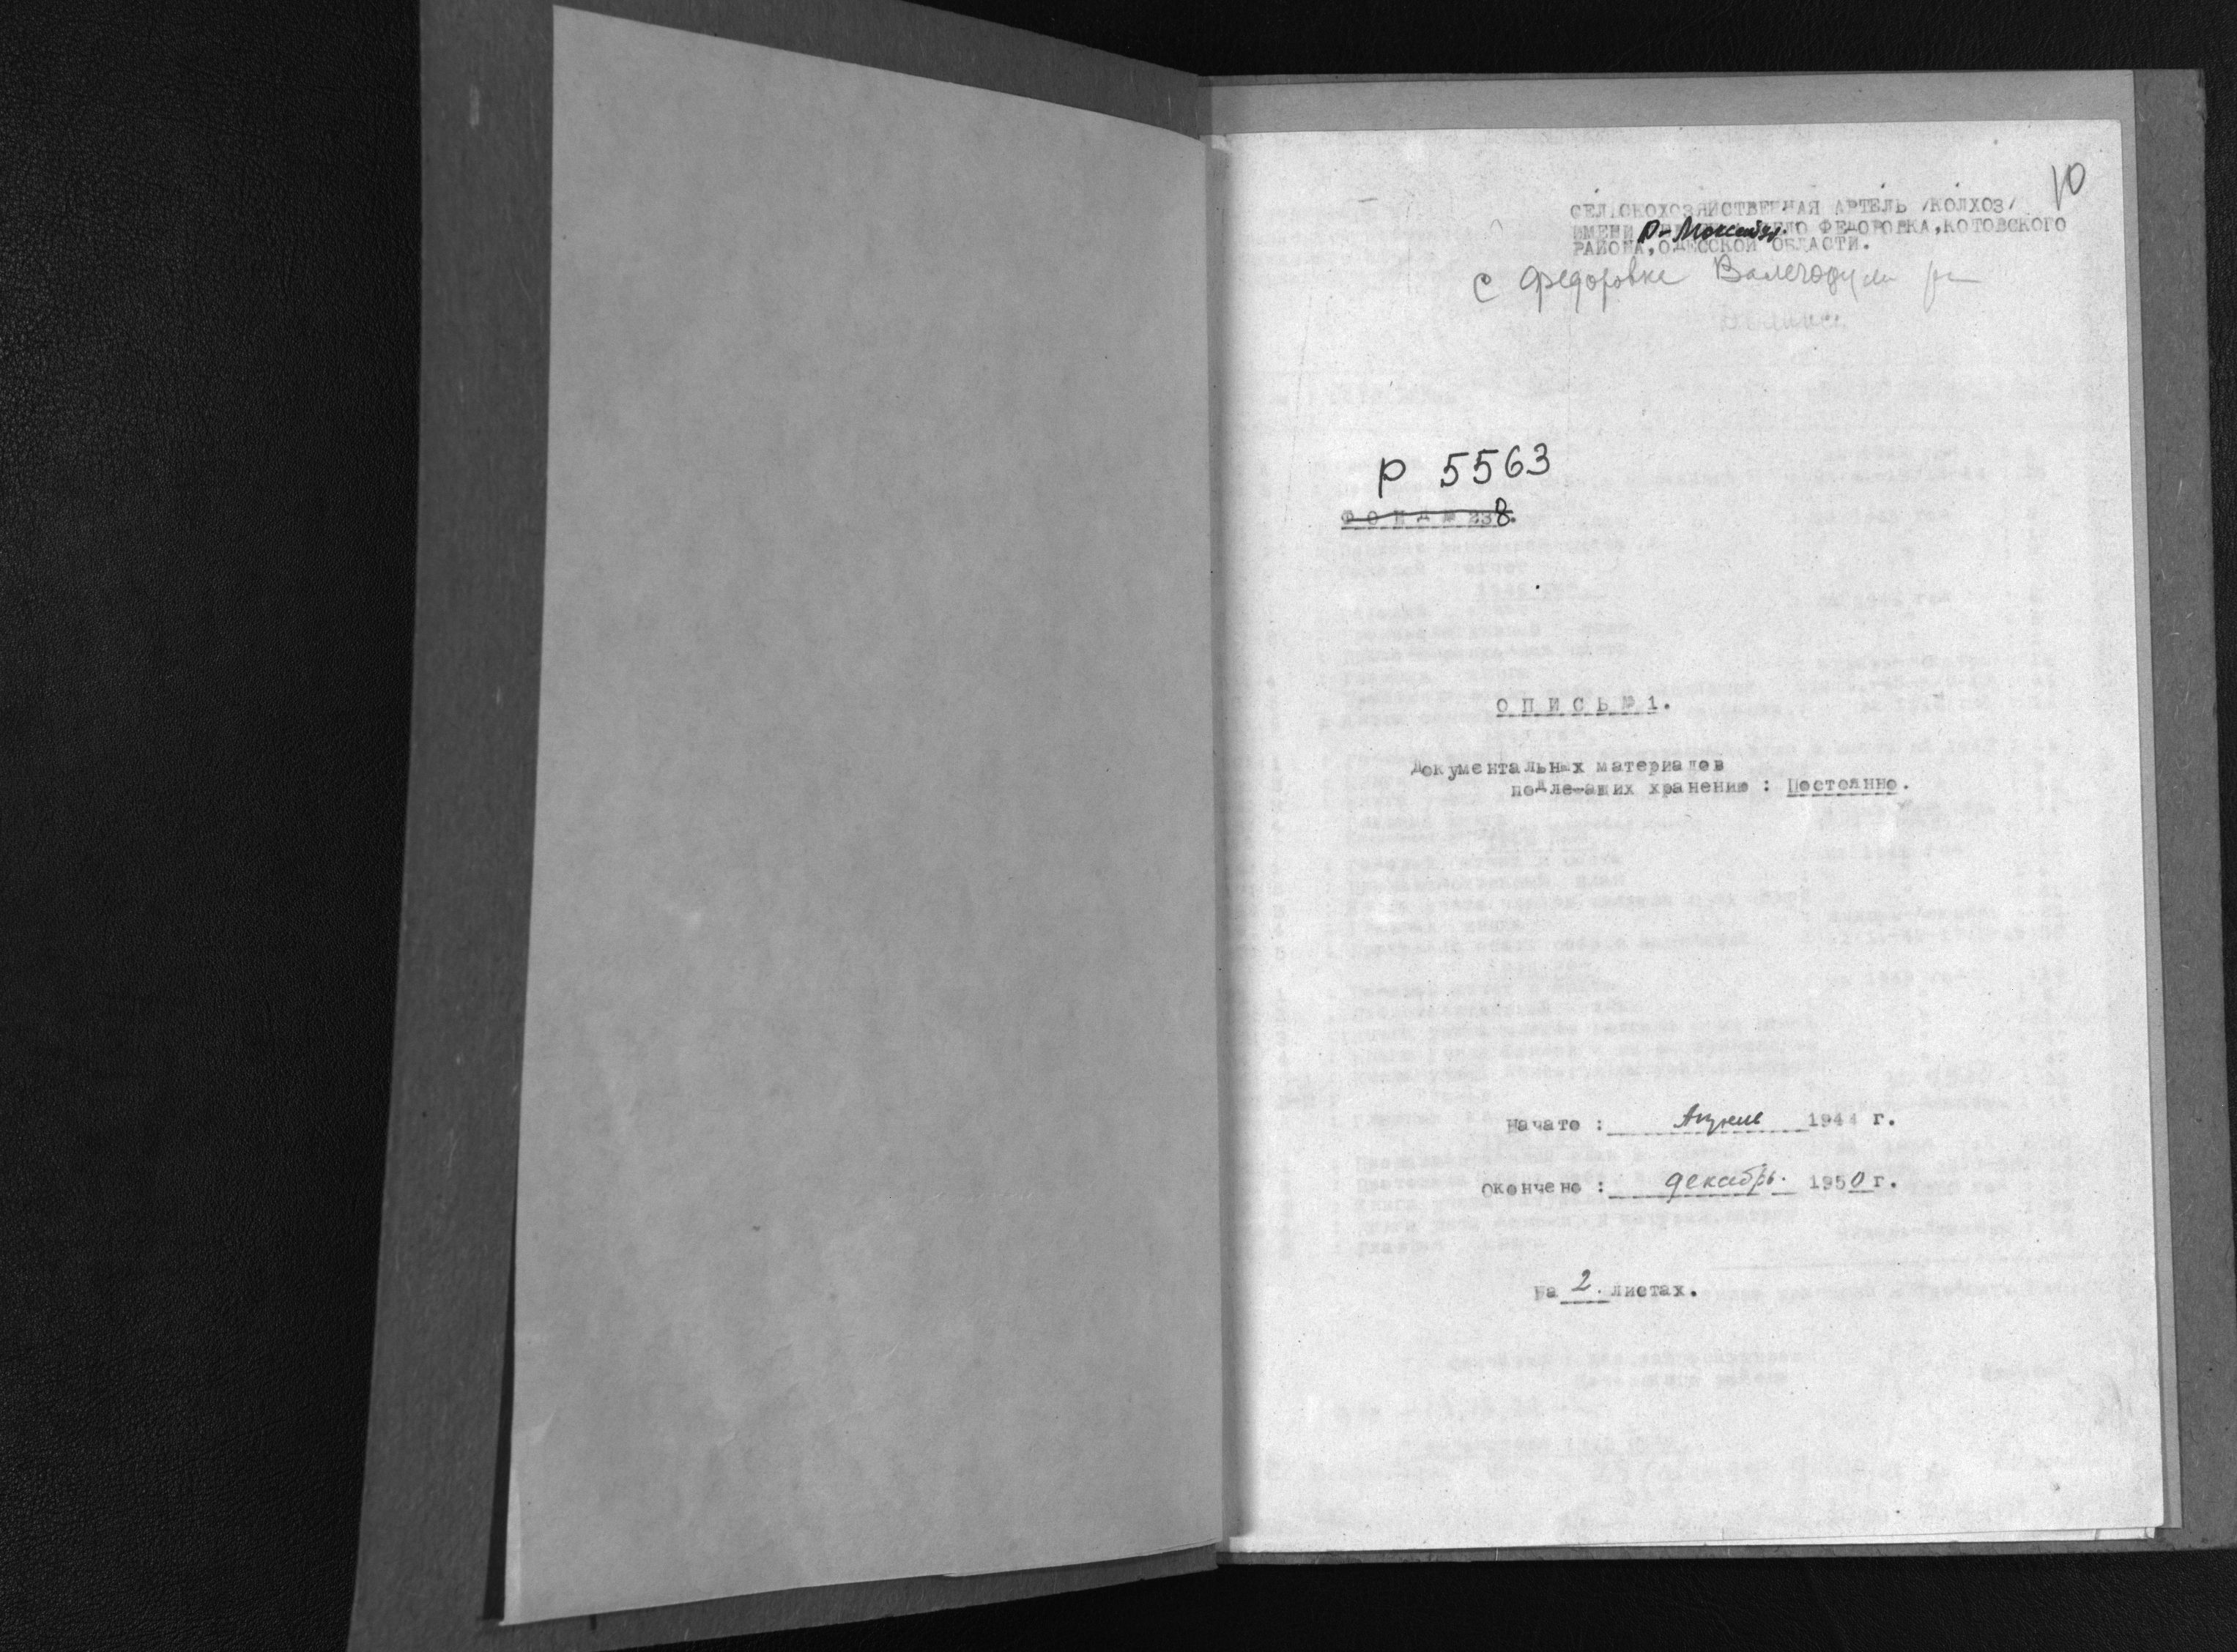 10
СЕЛЬСКОХОЗЯЙСТВЕННАЯ АРТЕЛЬ /КОЛХОЗ/
ИМЕНИ СЕЛО ФЕДОРОВКА, КОТОВСКОГО
РАЙОНА, ОДЕССКОЙ ОБЛАСТИ.
с Федоровка
Р 5563
ФОНД № 238.
ОПИСЬ № 1.
Документальных материалов
подлежащих хранению : Постоянно.
Начато : Апрель 1944 г.
Окончено : декабрь. 1950 г.
На 2. листах.